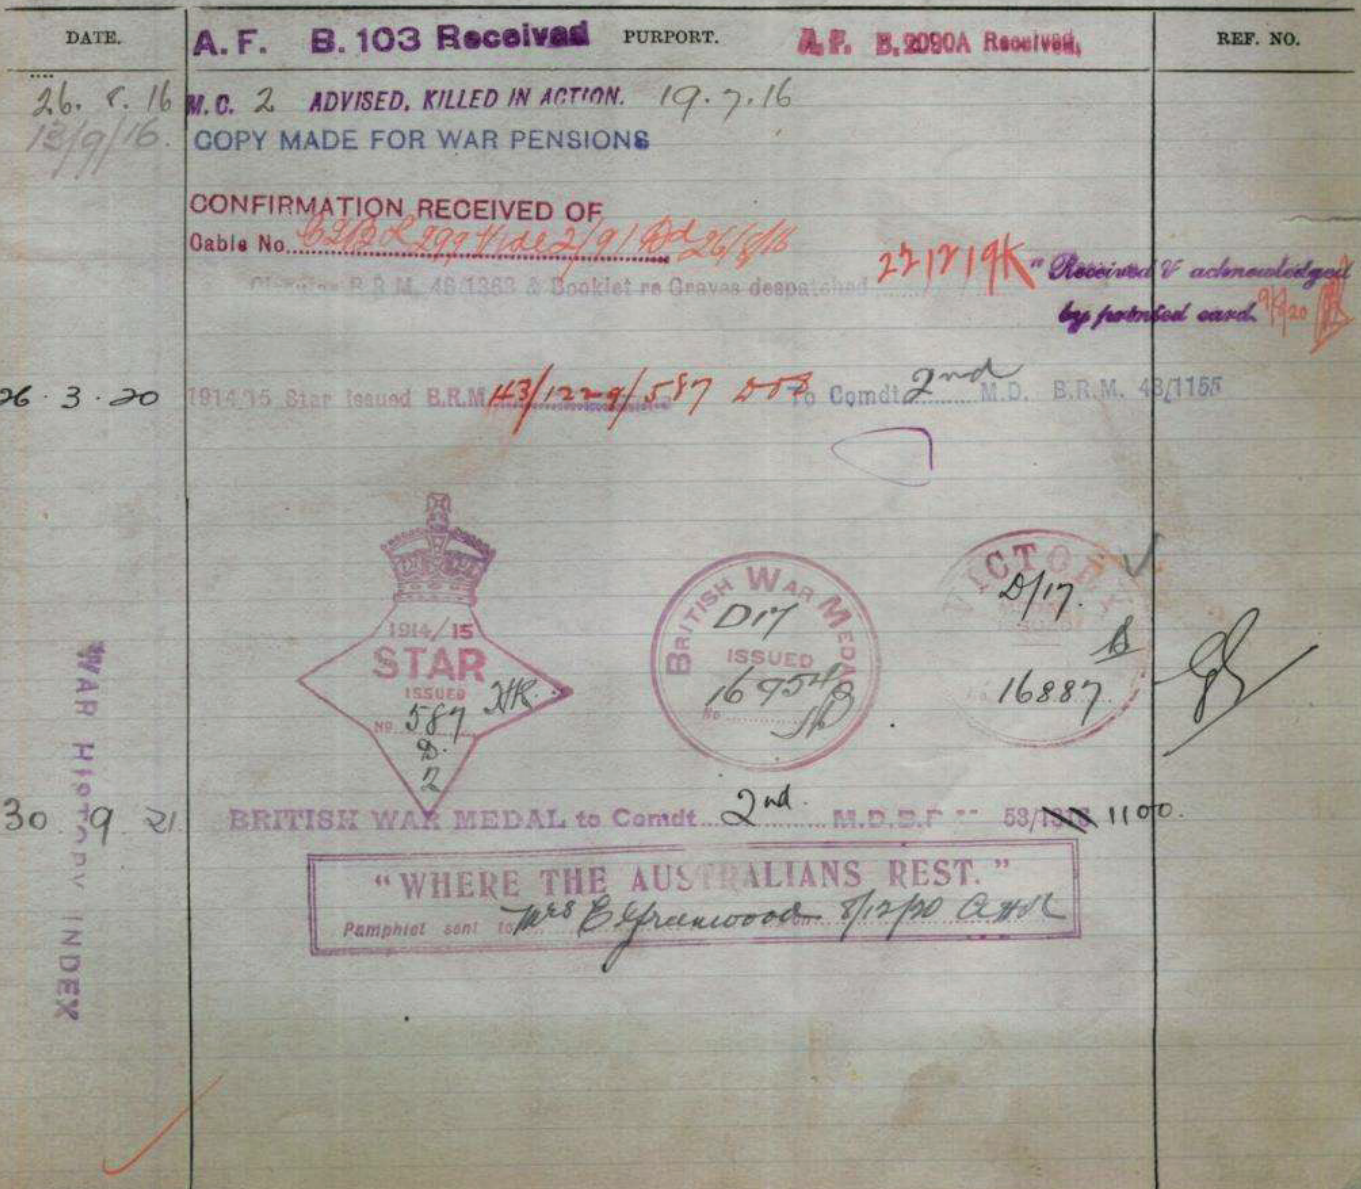 DATE. A. F. B. 103 Received PURPORT. A. F. B. 2090A Received, REF. NO.
26. 8. 16 M.C. 2 ADVISED, KILLED IN ACTION. 19.7.16
13/9/16. COPY MADE FOR WAR PENSIONS
CONFIRMATION RECEIVED OF
Cable No.
B.R.M. 48/1363 & Booklet re Graves despatched
"Received & acknowledged
by printed card.
26.3.20 1914/15 Star issued B.R.M. 43/1229/587 To Comdt 2nd M.D. B.R.M. 43/1155
1914/15
STAR
ISSUED
NO 587
D.
2
BRITISH WAR MEDAL
D17
ISSUED
No
VICTORY
D/17.
16887
WAR HISTORY INDEX
30 9 21 BRITISH WAR MEDAL to Comdt 2nd M.D. 53/ 1100.
"WHERE THE AUSTRALIANS REST."
Pamphlet sent to Mrs E Greenwood 8/12/20